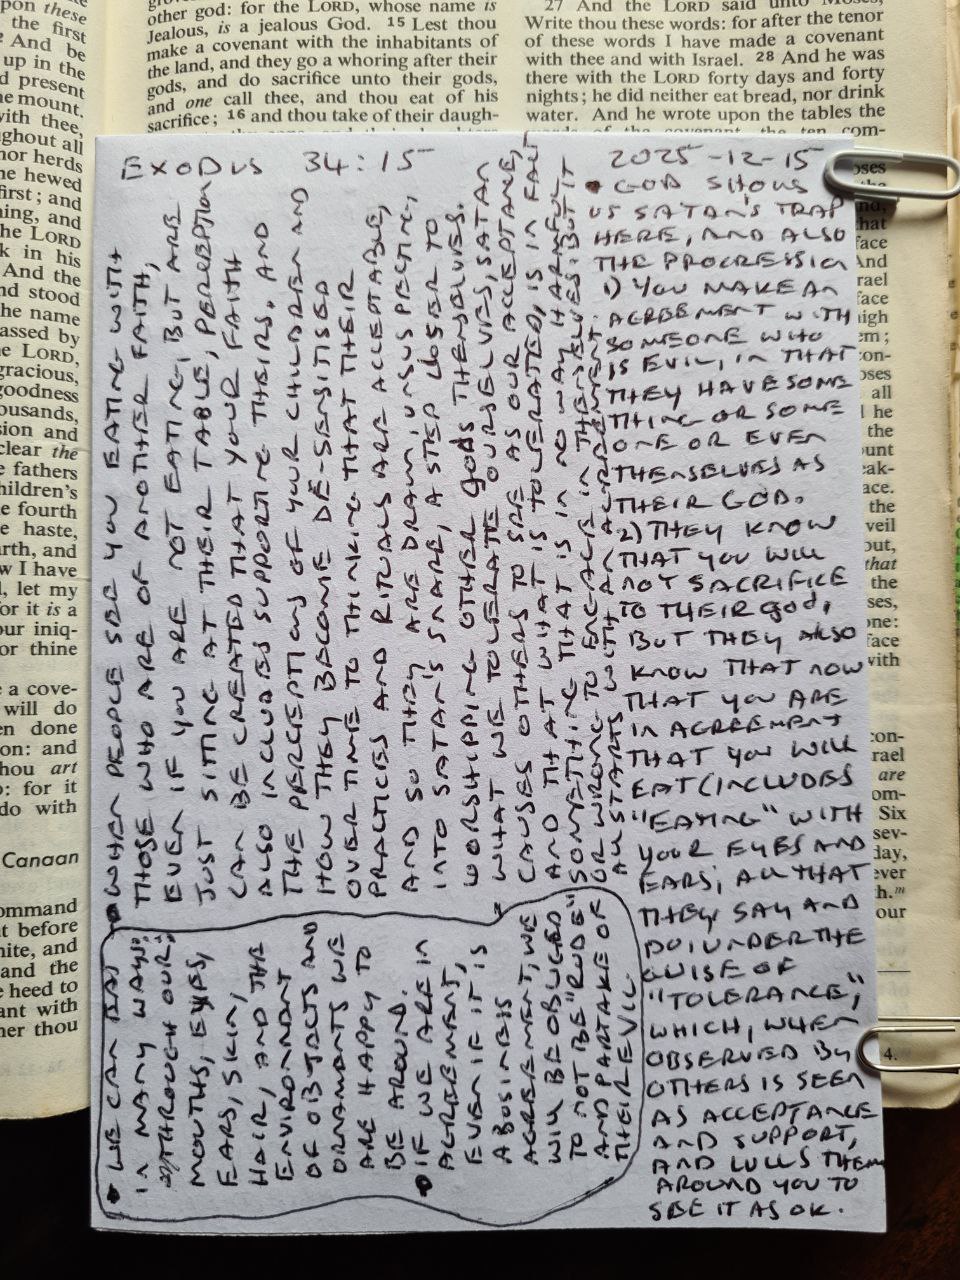 other god: for the LORD, whose name is
Jealous, is a jealous God. 15 Lest thou
make a covenant with the inhabitants of
the land, and they go a whoring after their
gods, and do sacrifice unto their gods,
and one call thee, and thou eat of his
sacrifice; 16 and thou take of their daugh-
27 And the LORD said unto Moses,
Write thou these words: for after the tenor
of these words I have made a covenant
with thee and with Israel. 28 And he was
there with the LORD forty days and forty
nights; he did neither eat bread, nor drink
water. And he wrote upon the tables the
words of the covenant, the ten com-
EXODUS 34:15
2025-12-15
• GOD SHOWS
US SATAN'S TRAP
HERE, AND ALSO
THE PROGRESSION
1) YOU MAKE AN
AGREEMENT WITH
SOMEONE WHO
IS EVIL, IN THAT
THEY HAVE SOME
THING OR SOME
ONE OR EVEN
THEMSELVES AS
THEIR GOD.
2) THEY KNOW
THAT YOU WILL
NOT SACRIFICE
TO THEIR god,
BUT THEY ALSO
KNOW THAT NOW
THAT YOU ARE
IN AGREEMENT
THAT YOU WILL
EAT (INCLUDES
"EATING" WITH
YOUR EYES AND
EARS, ALL THAT
THEY SAY AND
DO) UNDER THE
GUISE OF
"TOLERANCE",
WHICH, WHEN
OBSERVED BY
OTHERS IS SEEN
AS ACCEPTANCE
AND SUPPORT,
AND LULLS THEM
AROUND YOU TO
SEE IT AS OK.
• WHEN PEOPLE SEE YOU EATING WITH
THOSE WHO ARE OF ANOTHER FAITH,
EVEN IF YOU ARE NOT EATING, BUT ARE
JUST SITTING AT THEIR TABLE, PERCEPTION
CAN BE CREATED THAT YOUR FAITH
ALSO INCLUDES SUPPORTING THEIRS. AND
THE PERCEPTIONS OF YOUR CHILDREN AND
HOW THEY BECOME DE-SENSITISED
OVER TIME TO THINKING THAT THEIR
PRACTICES AND RITUALS ARE ACCEPTABLE,
AND SO THEY ARE DRAWN, UNSUSPECTING,
INTO SATAN'S SNARE, A STEP CLOSER TO
WORSHIPPING OTHER gods THEMSELVES.
WHAT WE TOLERATE OURSELVES, SATAN
CAUSES OTHERS TO SEE AS OUR ACCEPTANCE,
AND THAT WHAT IS TOLERATED, IS IN FACT
SOMETHING THAT IS IN NO WAY HARMFUL
OR WRONG TO ENGAGE IN THEMSELVES. BUT IT
ALL STARTS WITH AN AGREEMENT.
• WE CAN EAT
IN MANY WAYS;
THROUGH OUR;
MOUTHS, EYES,
EARS, SKIN,
HAIR, AND THE
ENVIRONMENT
OF OBJECTS AND
ORNAMENTS WE
ARE HAPPY TO
BE AROUND.
• IF WE ARE IN
AGREEMENT,
EVEN IF IT IS
A BUSINESS
AGREEMENT, WE
WILL BE OBLIGED
TO NOT BE "RUDE"
AND PARTAKE OF
THEIR EVIL.